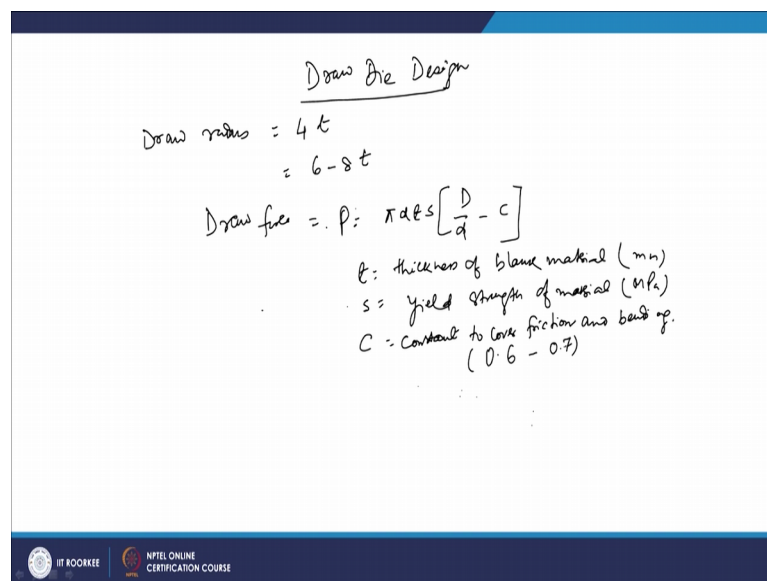 Draw Die Design
Draw radius = 4 t
= 6 - 8 t
Draw force = P = πdts [ D/d - C ]
t = thickness of blank material (mm)
s = yield strength of material (MPa)
C = constant to cover friction and bending.
(0.6 - 0.7)
IIT ROORKEE
NPTEL ONLINE
CERTIFICATION COURSE